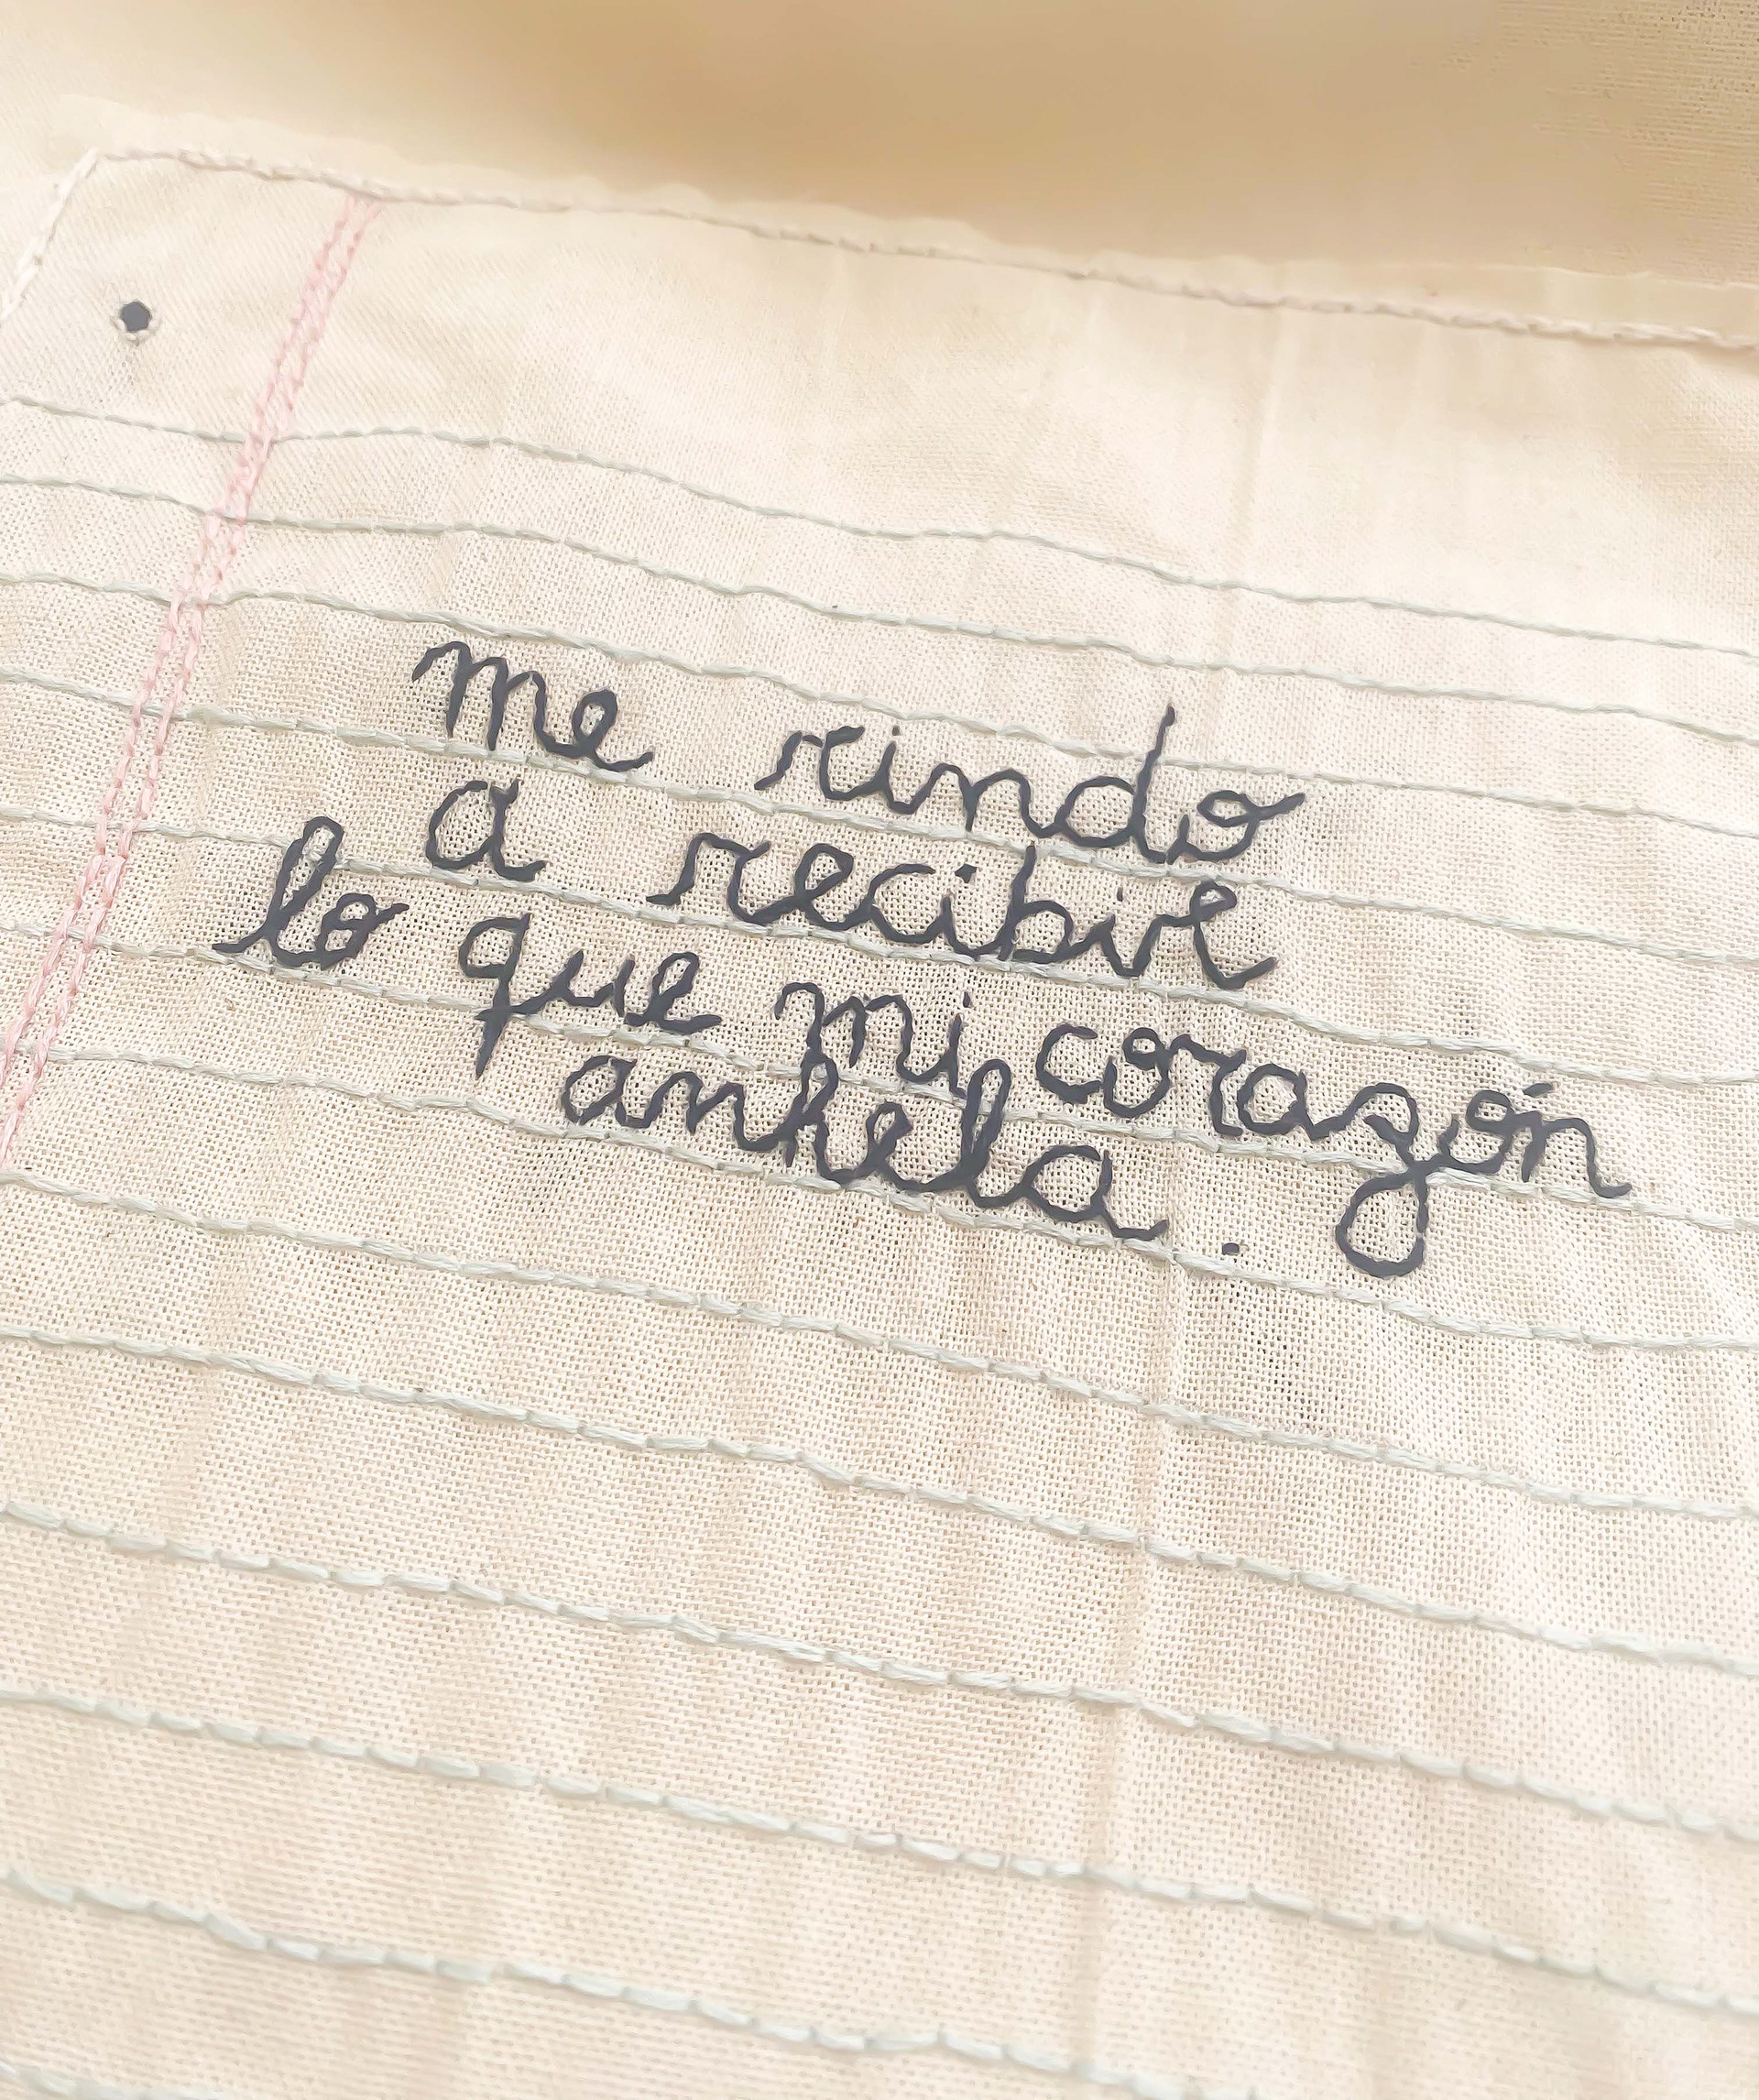 me rindo
a recibir
lo que mi corazón
anhela.